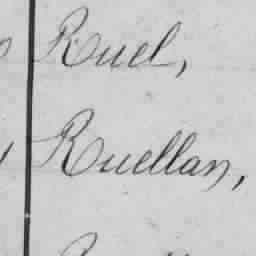 Ruel,
Ruellan,